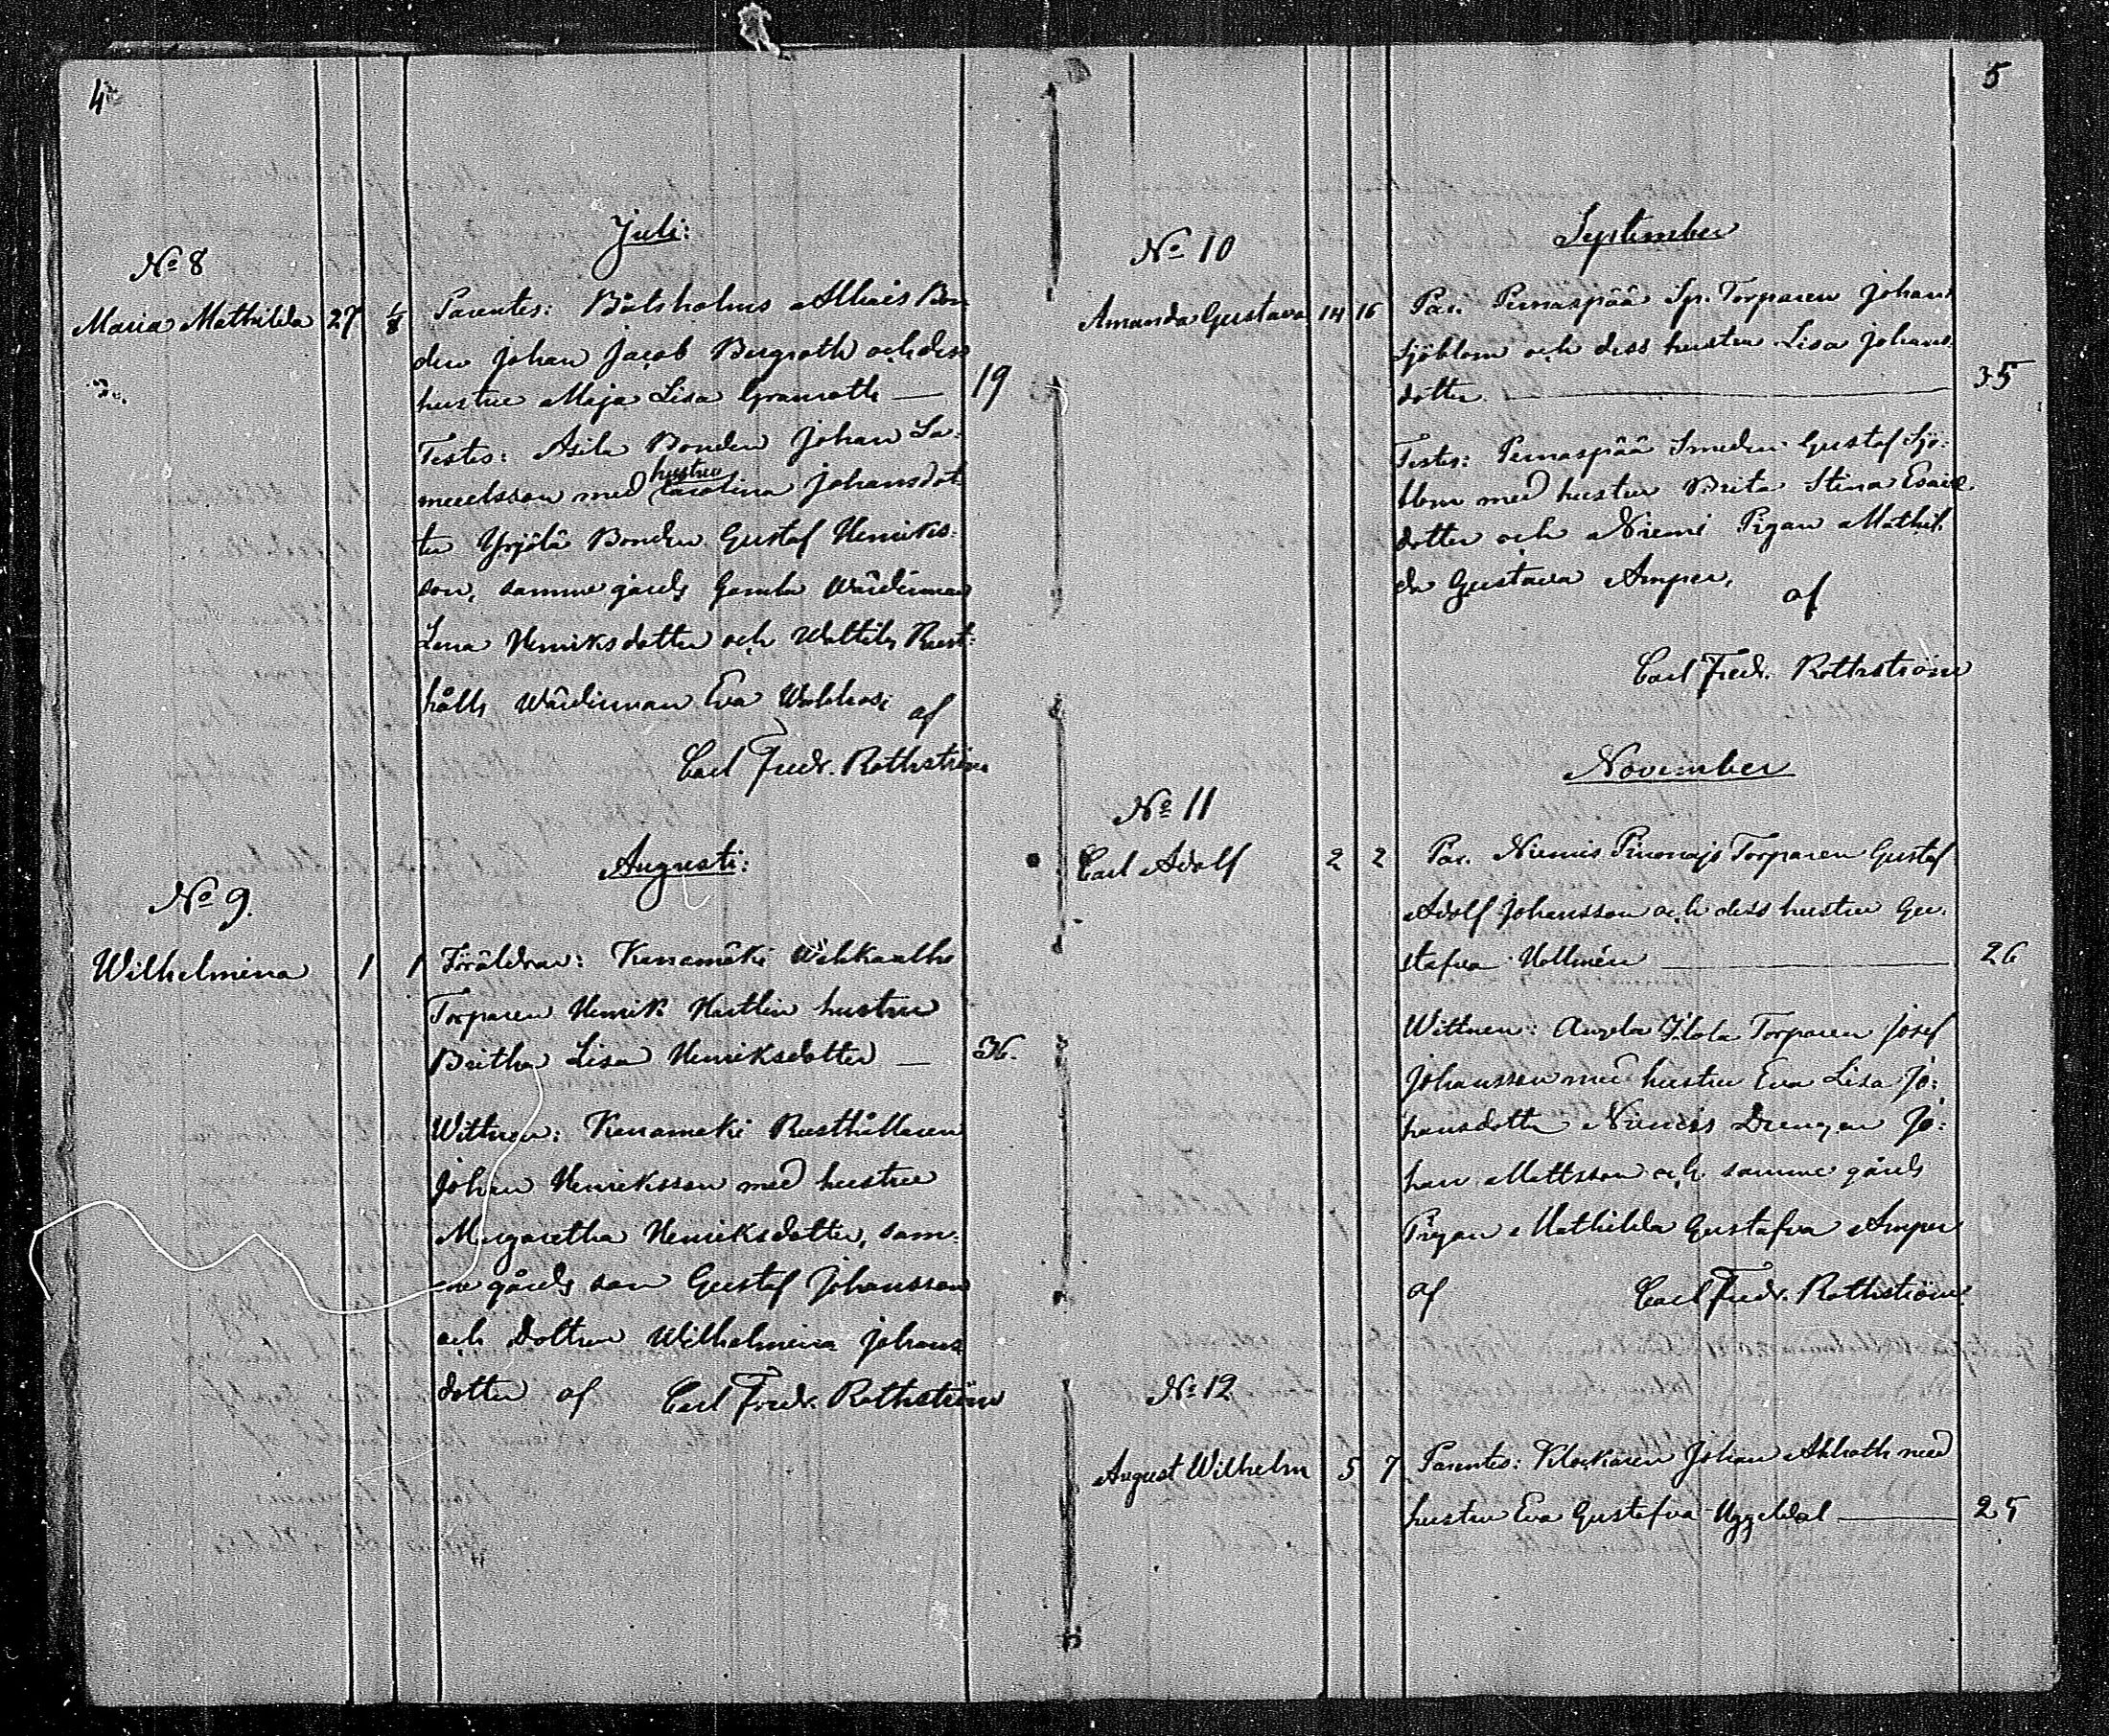 4
Juli:
No 8
Maria Mathilda 27 1/8 Parentes: Båtsholms Bon
den Johan Jacob Bergroth och dess
hustru Maja Lisa Granroth — 19
Testes: Asila Bonden Johan Sa-
muelsson med hustru Carolina Johansdot
ter Yrjölä Bonden Gustaf Henriks-
son, samme gårds Gamla Wärdinnan
Lena Henriksdotter och Rust-
hålls Wärdinnan Eva af
Carl Fredr. Rothström
Augusti:
No 9.
Wilhelmina 1 1 Föräldrar:
Torparen Henrik hustru
Britha Lisa Henriksdotter — 36.
Wittnen: Rusthållaren
Johan Henriksson med hustru
Margaretha Henriksdotter, sam-
me gårds son Gustaf Johansson
och Dottren Wilhelmina Johans
dotter af Carl Fredr. Rothström
5
September
No 10
Amanda Gustava 14 16 Par. Pernaspää Torparen Johan
Sjöblom och dess hustru Lisa Johans-
dotter — 35
Testes: Pernaspää Smeden Gustaf Sjö-
blom med hustru Brita Stina Esaie
dotter och Niemi Pigan Mathil-
da Gustava Amper, af
Carl Fredr. Rothström
November
No 11
Carl Adolf 2 2 Par. Niemis Torparen Gustaf
Adolf Johansson och dess hustru Gu-
stafva Hellmén — 26
Wittnen: Torparen Josef
Johansson med hustru Eva Lisa Jo-
hansdotter Niemis Drengen Jo-
han Mattsson och samme gårds
Pigan Mathilda Gustafva Amper
af Carl Fredr. Rothström
No 12
August Wilhelm 5 7 Parentes: Klockaren Johan Ahlroth med
hustru Eva Gustafva Uggeldal — 25